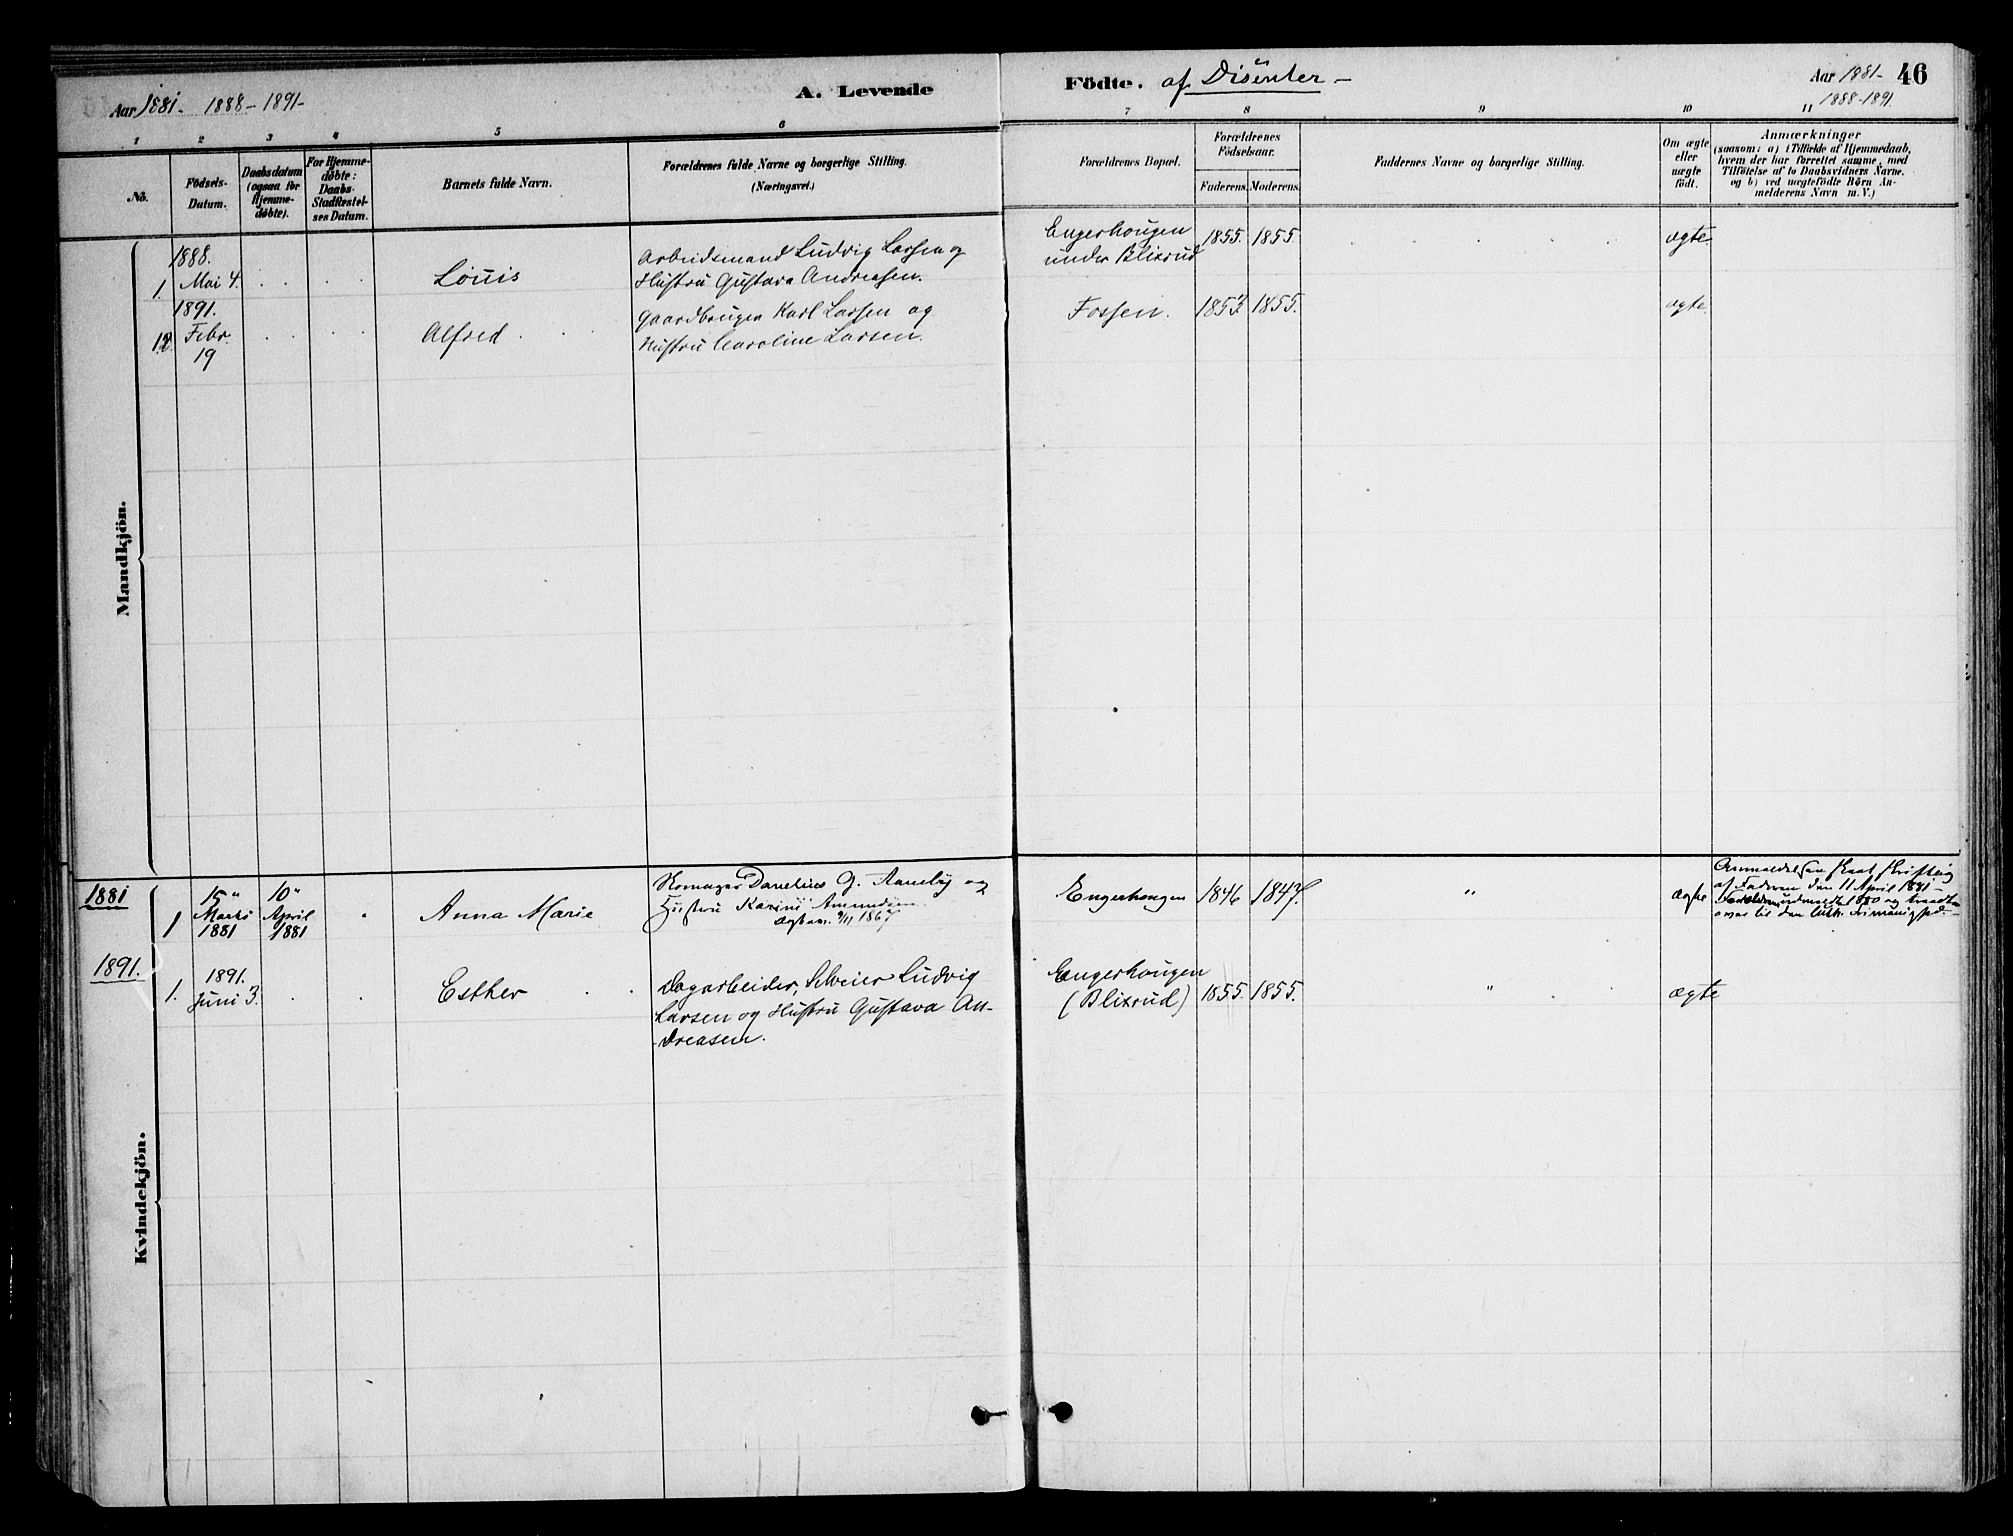 Aar 1881. 1888-1891-
A. Levende
Födte. af Disenter -
Aar 1881- 46
1888-1891.
1 2 3 4 5 6 7 8 9 10 11
No.
Födsels-
Datum.
Daabsdatum
(ogsaa for
Hjemme-
døbte).
For Hjemme-
døbte:
Daabs-
Stadfæstel-
ses Datum.
Barnets fulde Navn.
Forældrenes fulde Navne og borgerlige Stilling.
(Næringsvei.)
Forældrenes Bopæl.
Forældrenes
Födselsaar.
Faderens. Moderens.
Faddernes Navne og borgerlige Stilling.
Om ægte
eller
uægte
født.
Anmærkninger
(saasom: a) i Tilfælde af Hjemmedaab,
hvem der har forrettet samme, med
Tilføielse af to Daabsvidners Navne.
og b) ved uægtefödte Börn An-
melderens Navn m. V.)
Mandkjön.
1888.
1. Mai 4.
Louis
Arbeidsmand Ludvig Larsen og
Hustru Gustava Andreasen.
Engerhougen
under Blixrud
1855. 1855.
ægte
1891.
12. Febr.
19
Alfred
Gaardbruger Karl Larsen og
Hustru Caroline Larsen.
Fossen. 1855.
ægte
Kvindekjön.
1881
1
15"
Marts
1881
10"
April
1881
Anna Marie
Danelius G. Aaneby og
Hustru Karine Amundsen
Ægtev. 9/11 1867
Engerhougen 1846 1847.
"
ægte
Anmeldelsen
af Faderen den 11 April 1881 -
Forældrene udmeldt 1880 og traadt
over til den luth. Frimenighed. -
1891.
1. 1891.
Juni 3.
Esther
Dagarbeider, Ludvig
Larsen og Hustru Gustava An-
dreasen.
Engerhougen
(Blixrud) 1855. 1855.
"
ægte